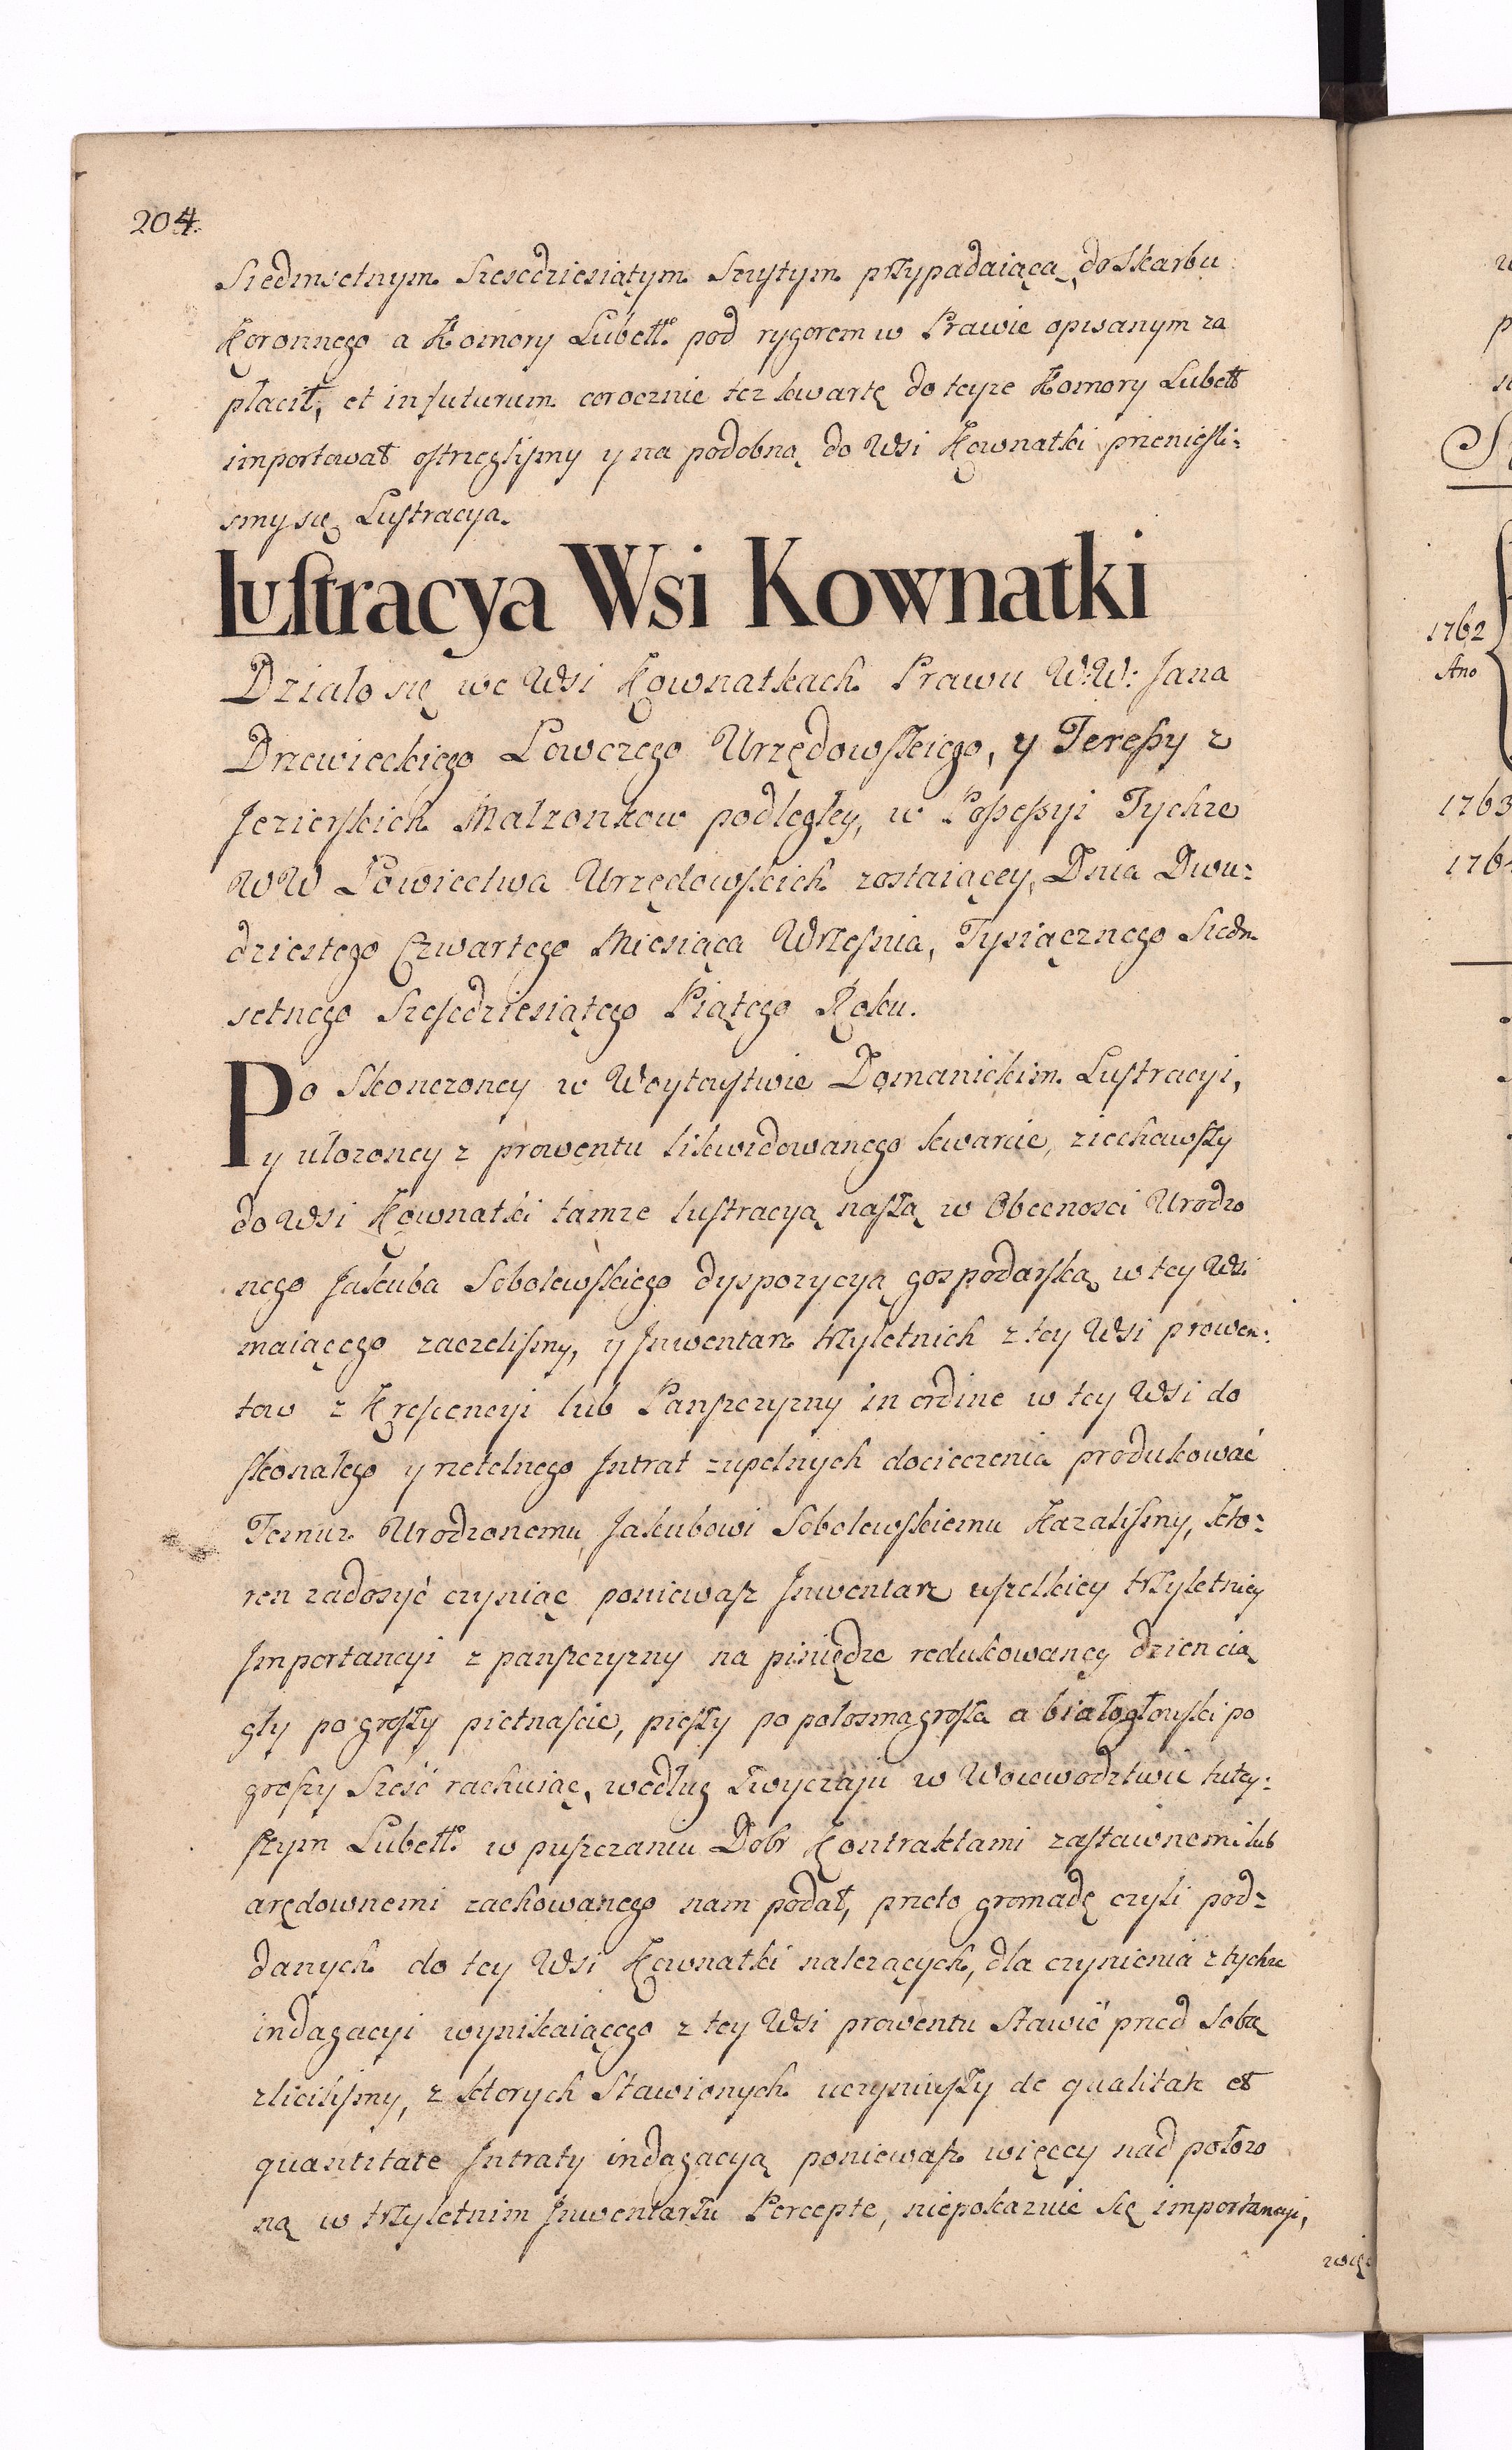 204.
Siedmsetnym Szescdziesiątym Szustym przypadaiącą, do Skarbu
Koronnego a Komory Lubellꝰ pod rygorem w Prawie opisanym za
płacił, et in futurum corocznie tez kwartę do teyze Komory Lubell
importował ostrzeglismy y na podobną do Wsi Kownatki przeniesli:
smy się Lustracya.
Lustracya Wsi Kownatki
Działo się we Wsi Kownatkach Prawu W:W: Jana
Drzewieckiego Łowczego Urzędowskiego, y Teressy z
Jezierskich Małzonkow podległey, w Possessyi Tychze
WW Łowiectwa Urzędowskich zostaiącey, Dnia Dwu:
dziestego Czwartego Miesiąca Wrzesnia, Tysiącznego Siedm
setnego Szescdziesiątego Piątego Roku.
Po Skonczoney w Woytostwie Domanickim Lustracyi,
y ułozoney z prowentu likwidowanego kwarcie, ziechawszy
do Wsi Kownatki tamze lustracyą naszą w Obecnosci Urodzo
nego Jakuba Sobolewskiego dyspozycyą gospodarską w tey Wsi
maiącego zaczelismy, y Jnwentarz trzyletnich z tey Wsi prowen:
tow z Krescencyi lub Panszczyzny in ordine w tey Wsi do
skonałego y rzetelnego Jntrat zupełnych docieczenia produkować
Temuz Urodzonemu Jakubowi Sobolewskiemu Kazalismy, kto:
ren zadosyć czyniąc poniewasz Jnwentarz wszelkiey trzyletniey
Jmportancyi z panszczyzny na piniędze redukowaney dzien cią
gły po groszy pietnascie, pieszy po połosma grosza a białogłowski po
groszy Sześć rachuiąc, według Zwyczaju w Woiewodztwie tutey:
szym Lubellꝰ w puszczaniu Dobr Kontraktami zastawnemi lub
arędownemi zachowanego nam podał, przeto gromadę czyli pod:
danych do tey Wsi Kownatki nalezących, dla czynienia z tychze
indagacyi wynikaiącego z tey Wsi prowentu Stawić przed Sobą
zlicilismy, z ktorych Stawionych uczyniwszy de qualitate et
quantitate Jntraty indagacyą poniewasz więcey nad połozo
ną w trzyletnim Jnwentarzu Percepte, niepokazuie się importancyi,
więc
1762
Ano
1763